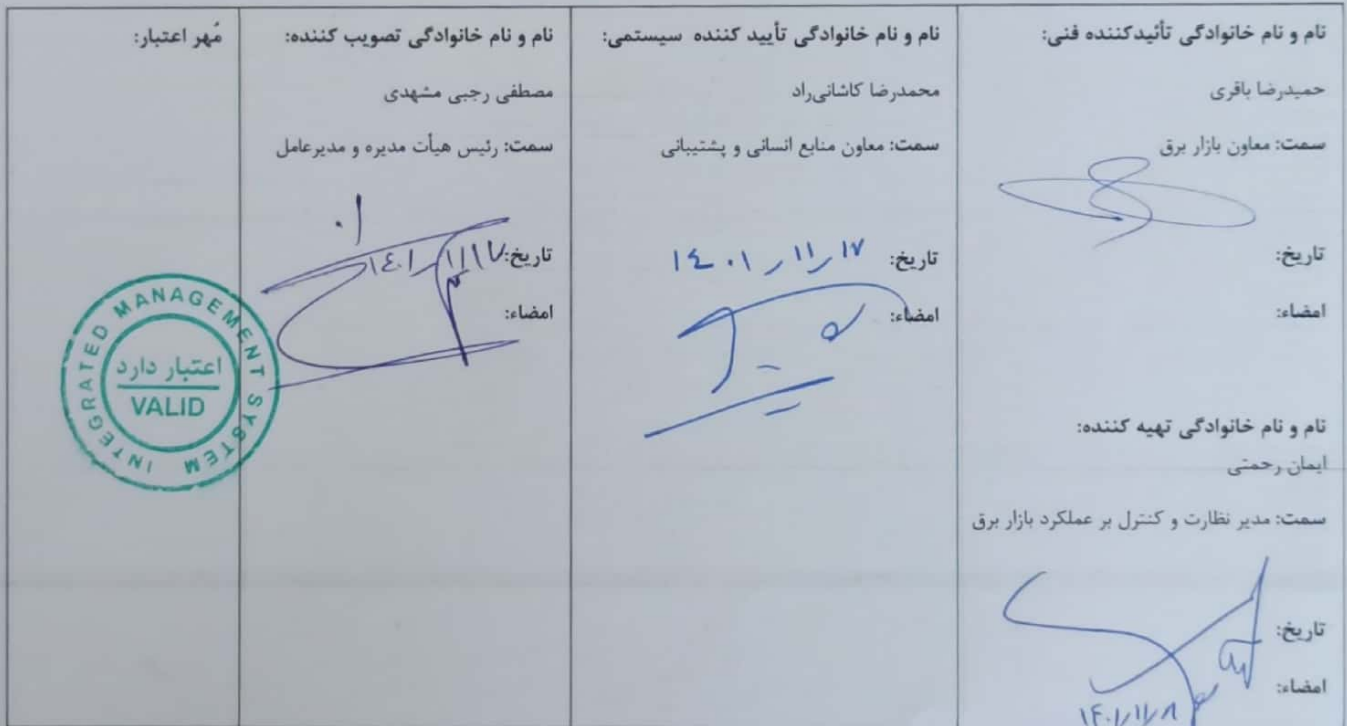 نام و نام خانوادگی تأئیدکننده فنی:
حمیدرضا باقری
سمت: معاون بازار برق
تاریخ:
امضاء:
نام و نام خانوادگی تهیه کننده:
ایمان رحمتی
سمت: مدیر نظارت و کنترل بر عملکرد بازار برق
تاریخ:
امضاء:
۱۴۰۱/۱۱/۸
نام و نام خانوادگی تأیید کننده سیستمی:
محمدرضا کاشانی‌راد
سمت: معاون منابع انسانی و پشتیبانی
تاریخ: ۱۴۰۱/۱۱/۱۷
امضاء:
نام و نام خانوادگی تصویب کننده:
مصطفی رجبی مشهدی
سمت: رئیس هیأت مدیره و مدیرعامل
تاریخ: ۱۴۰۱/۱۱/۱۷
امضاء:
مُهر اعتبار:
INTEGRATED MANAGEMENT SYSTEM
اعتبار دارد
VALID